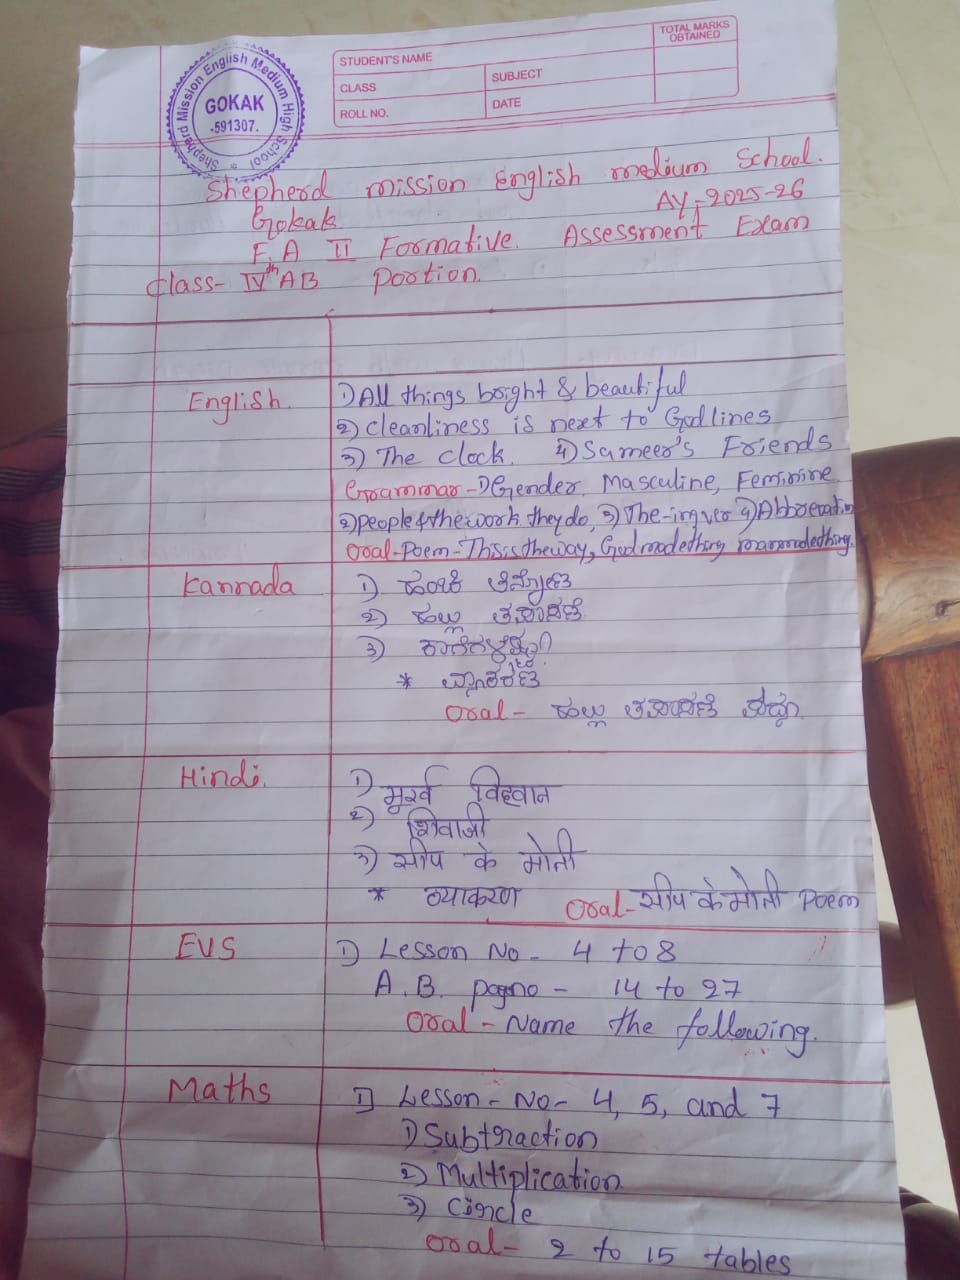 Shepherd Mission English Medium High School
GOKAK
-591307.
STUDENT'S NAME
CLASS
SUBJECT
ROLL NO.
DATE
TOTAL MARKS
OBTAINED
Shepherd mission English medium School.
Gokak. AY-2025-26
F.A II Formative. Assessment Exam
Class- IVth AB Portion.
English.
1) All things bright & beautiful
2) Cleanliness is next to Godlines
3) The clock. 4) Sameer's Friends
Grammar-1) Gender. Masculine, Feminine
2) people & the work they do, 3) The-ing ver 4)
Oral-Poem-This is the way, God made thing manmade thing.
Kannada
1)
2) ಹಲ್ಲು
3)
* ವ್ಯಾಕರಣ
Oral- ಹಲ್ಲು ಪದ್ಯ
Hindi.
1) मूर्ख विद्दवान
2) शिवाजी
3) सीप के मोती
* व्याकरण Oral-सीप के मोती Poem
EVS
1) Lesson No - 4 to 8
A.B. pagno - 14 to 27
Oral - Name the following.
Maths
I) Lesson - No - 4, 5, and 7
1) Subtraction
2) Multiplication
3) Circle
Oral- 2 to 15 tables